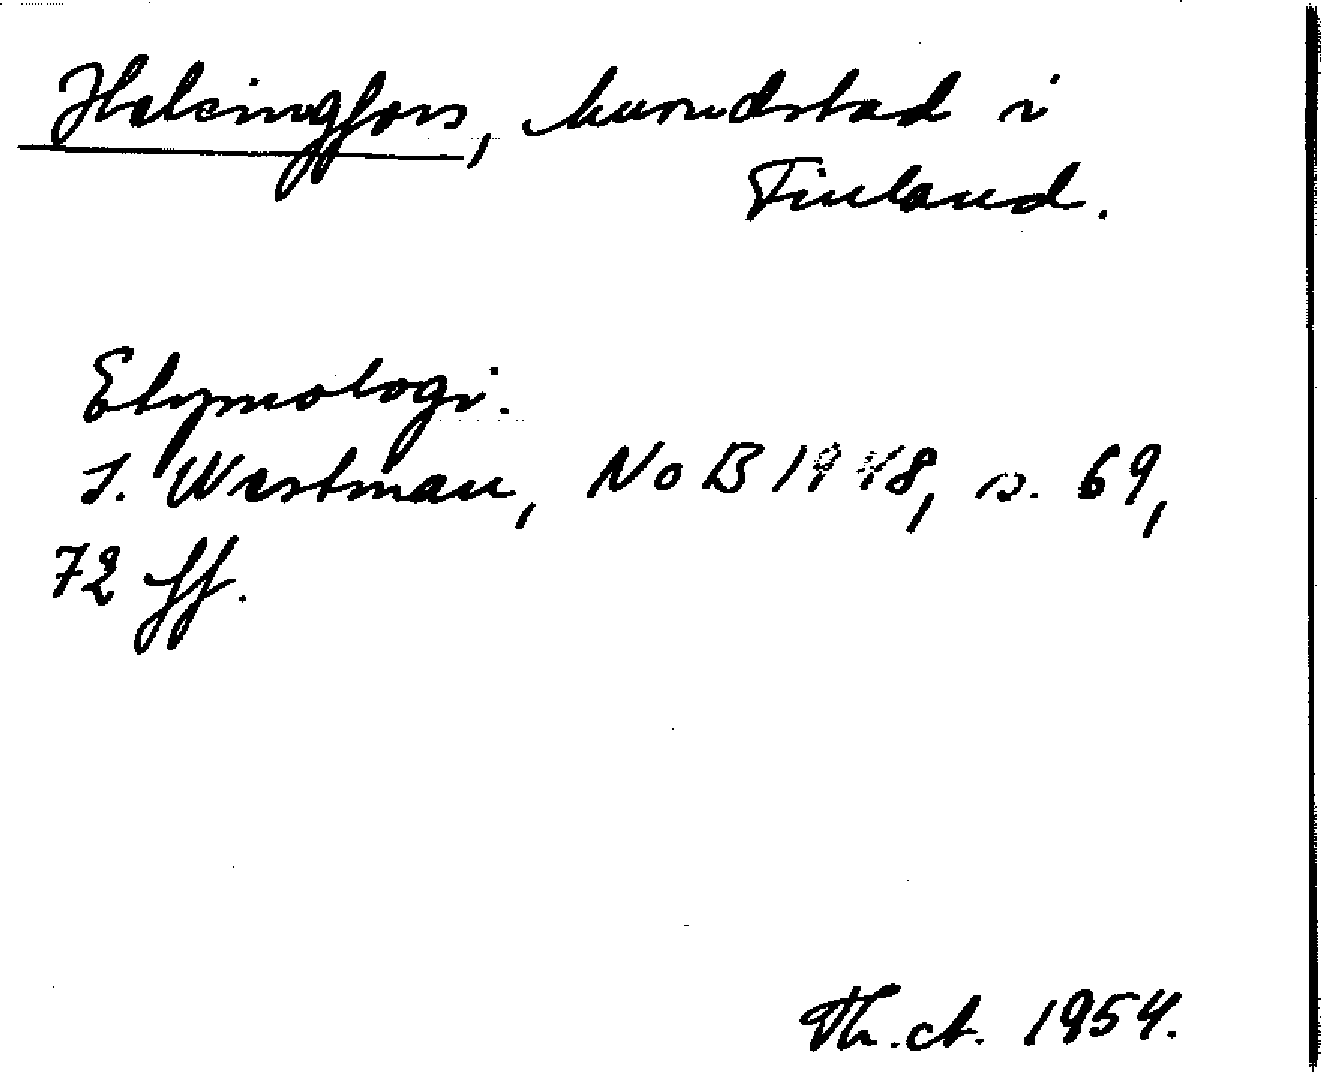 Helsingfors, huvudstad i
Finland.
Etymologi.
I. Westman, NoB 1948, s. 69,
72 ff.
Th. 1954.